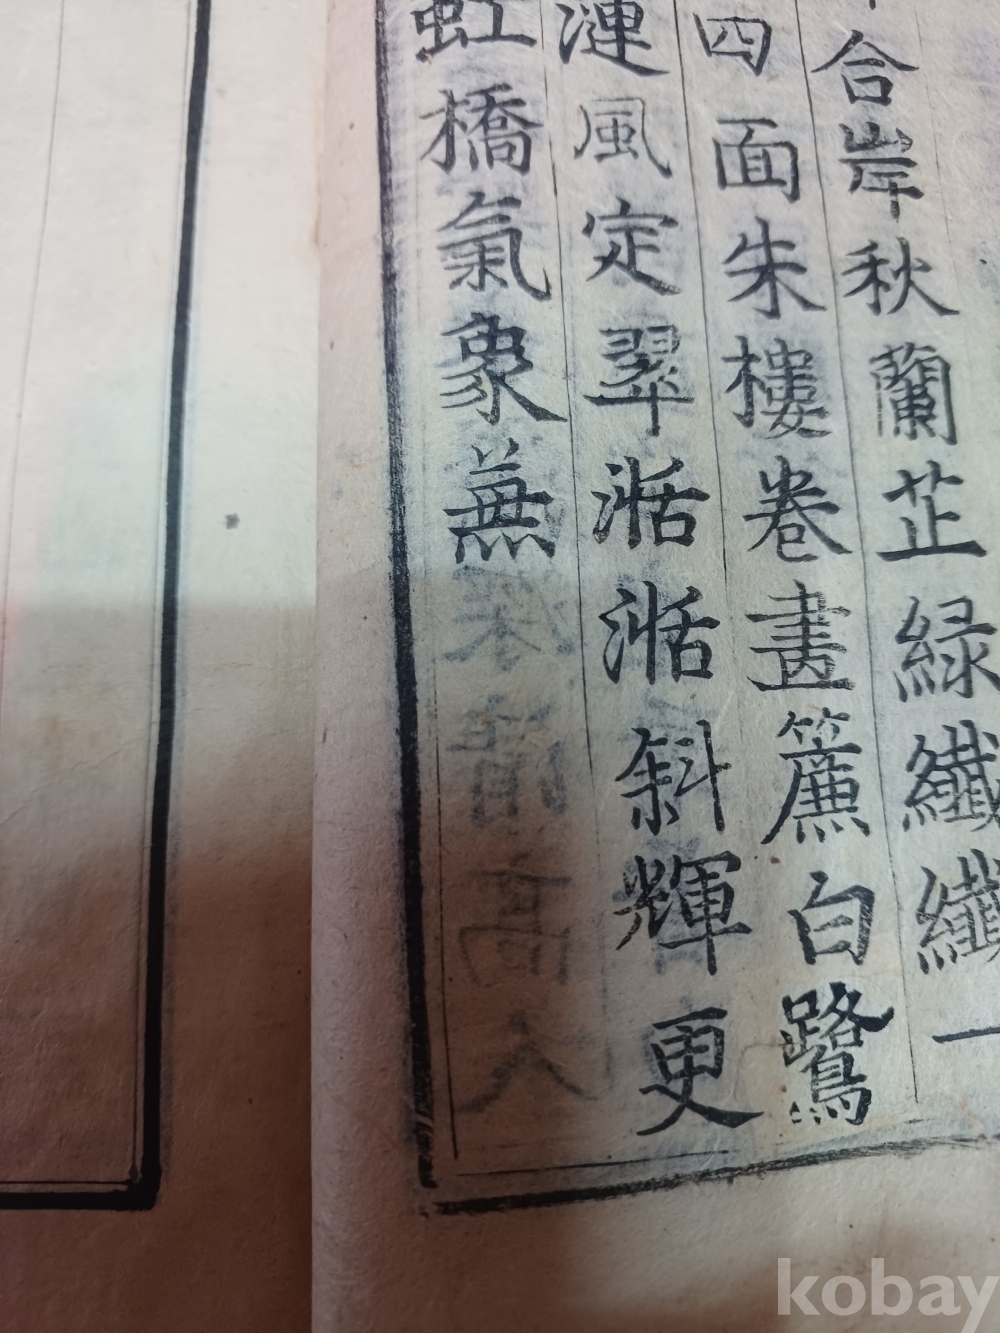 合岸秋蘭芷綠纖纖一
四面朱樓卷畫簾白鷺
漣風定翠湉湉斜輝更
虹橋氣象蕪
kobay